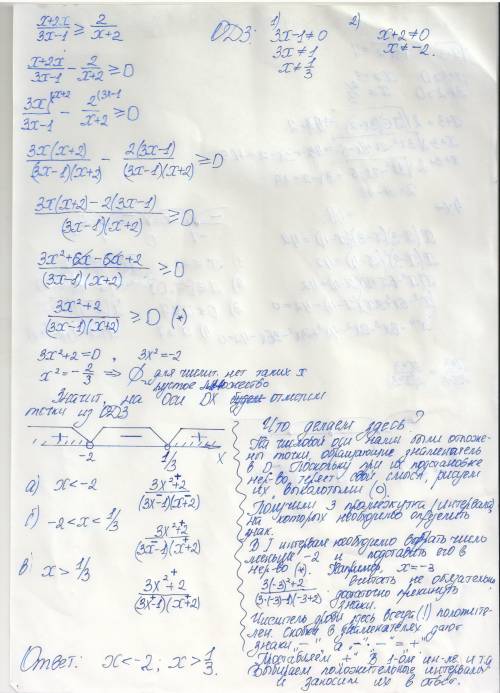 x+2x/3x-1 ≥ 2/x+2
ОДЗ: 1) 3x-1≠0 2) x+2≠0
3x≠1 x≠-2.
x≠1/3
x+2x/3x-1 - 2/x+2 ≥ 0
3x(x+2/3x-1 - 2(3x-1/x+2 ≥ 0
3x(x+2)/(3x-1)(x+2) - 2(3x-1)/(3x-1)(x+2) ≥ 0
3x(x+2)-2(3x-1)/(3x-1)(x+2) ≥ 0
3x²+6x-6x+2/(3x-1)(x+2) ≥ 0
3x²+2/(3x-1)(x+2) ≥ 0 (*)
3x²+2=0, 3x²=-2
x²=-2/3 ⇒ ∅ для числит. нет таких x
пустое множество
Значит, на оси OX отметим
точки из ОДЗ
+ - +
-2 1/3 x
а) x<-2 3x²+2/(3x-1)(x+2)
б) -2<x<1/3 3x²+2/(3x-1)(x+2)
в) x>1/3 3x²+2/(3x-1)(x+2)
Ответ: x<-2; x>1/3.
Что делаем здесь?
На числовой оси нами были отложе-
ны точки, обращающие знаменатель
в 0. Поскольку при их подстановке
нер-во теряет свой смысл, рисуем
их выколотыми (о).
Получили 3 промежутка (интервала)
на которых необходимо определить
знак.
В I интервале необходимо выбрать число
меньше -2 и подставить его в
нер-во (*). Например, x=-3
3(-3)²+2/(3·(-3)-1)(-3+2) считать не обязательно
достаточно прикинуть
знаки.
Числитель дроби здесь всегда (!) положите-
лен. Скобки в знаменателях дают
знаки "-", а "-" · "-" = "+"
Проставляем "+" в 1-ом ин-ле и т.д.
Выбираем положительные интервалы
и заносим их в ответ.